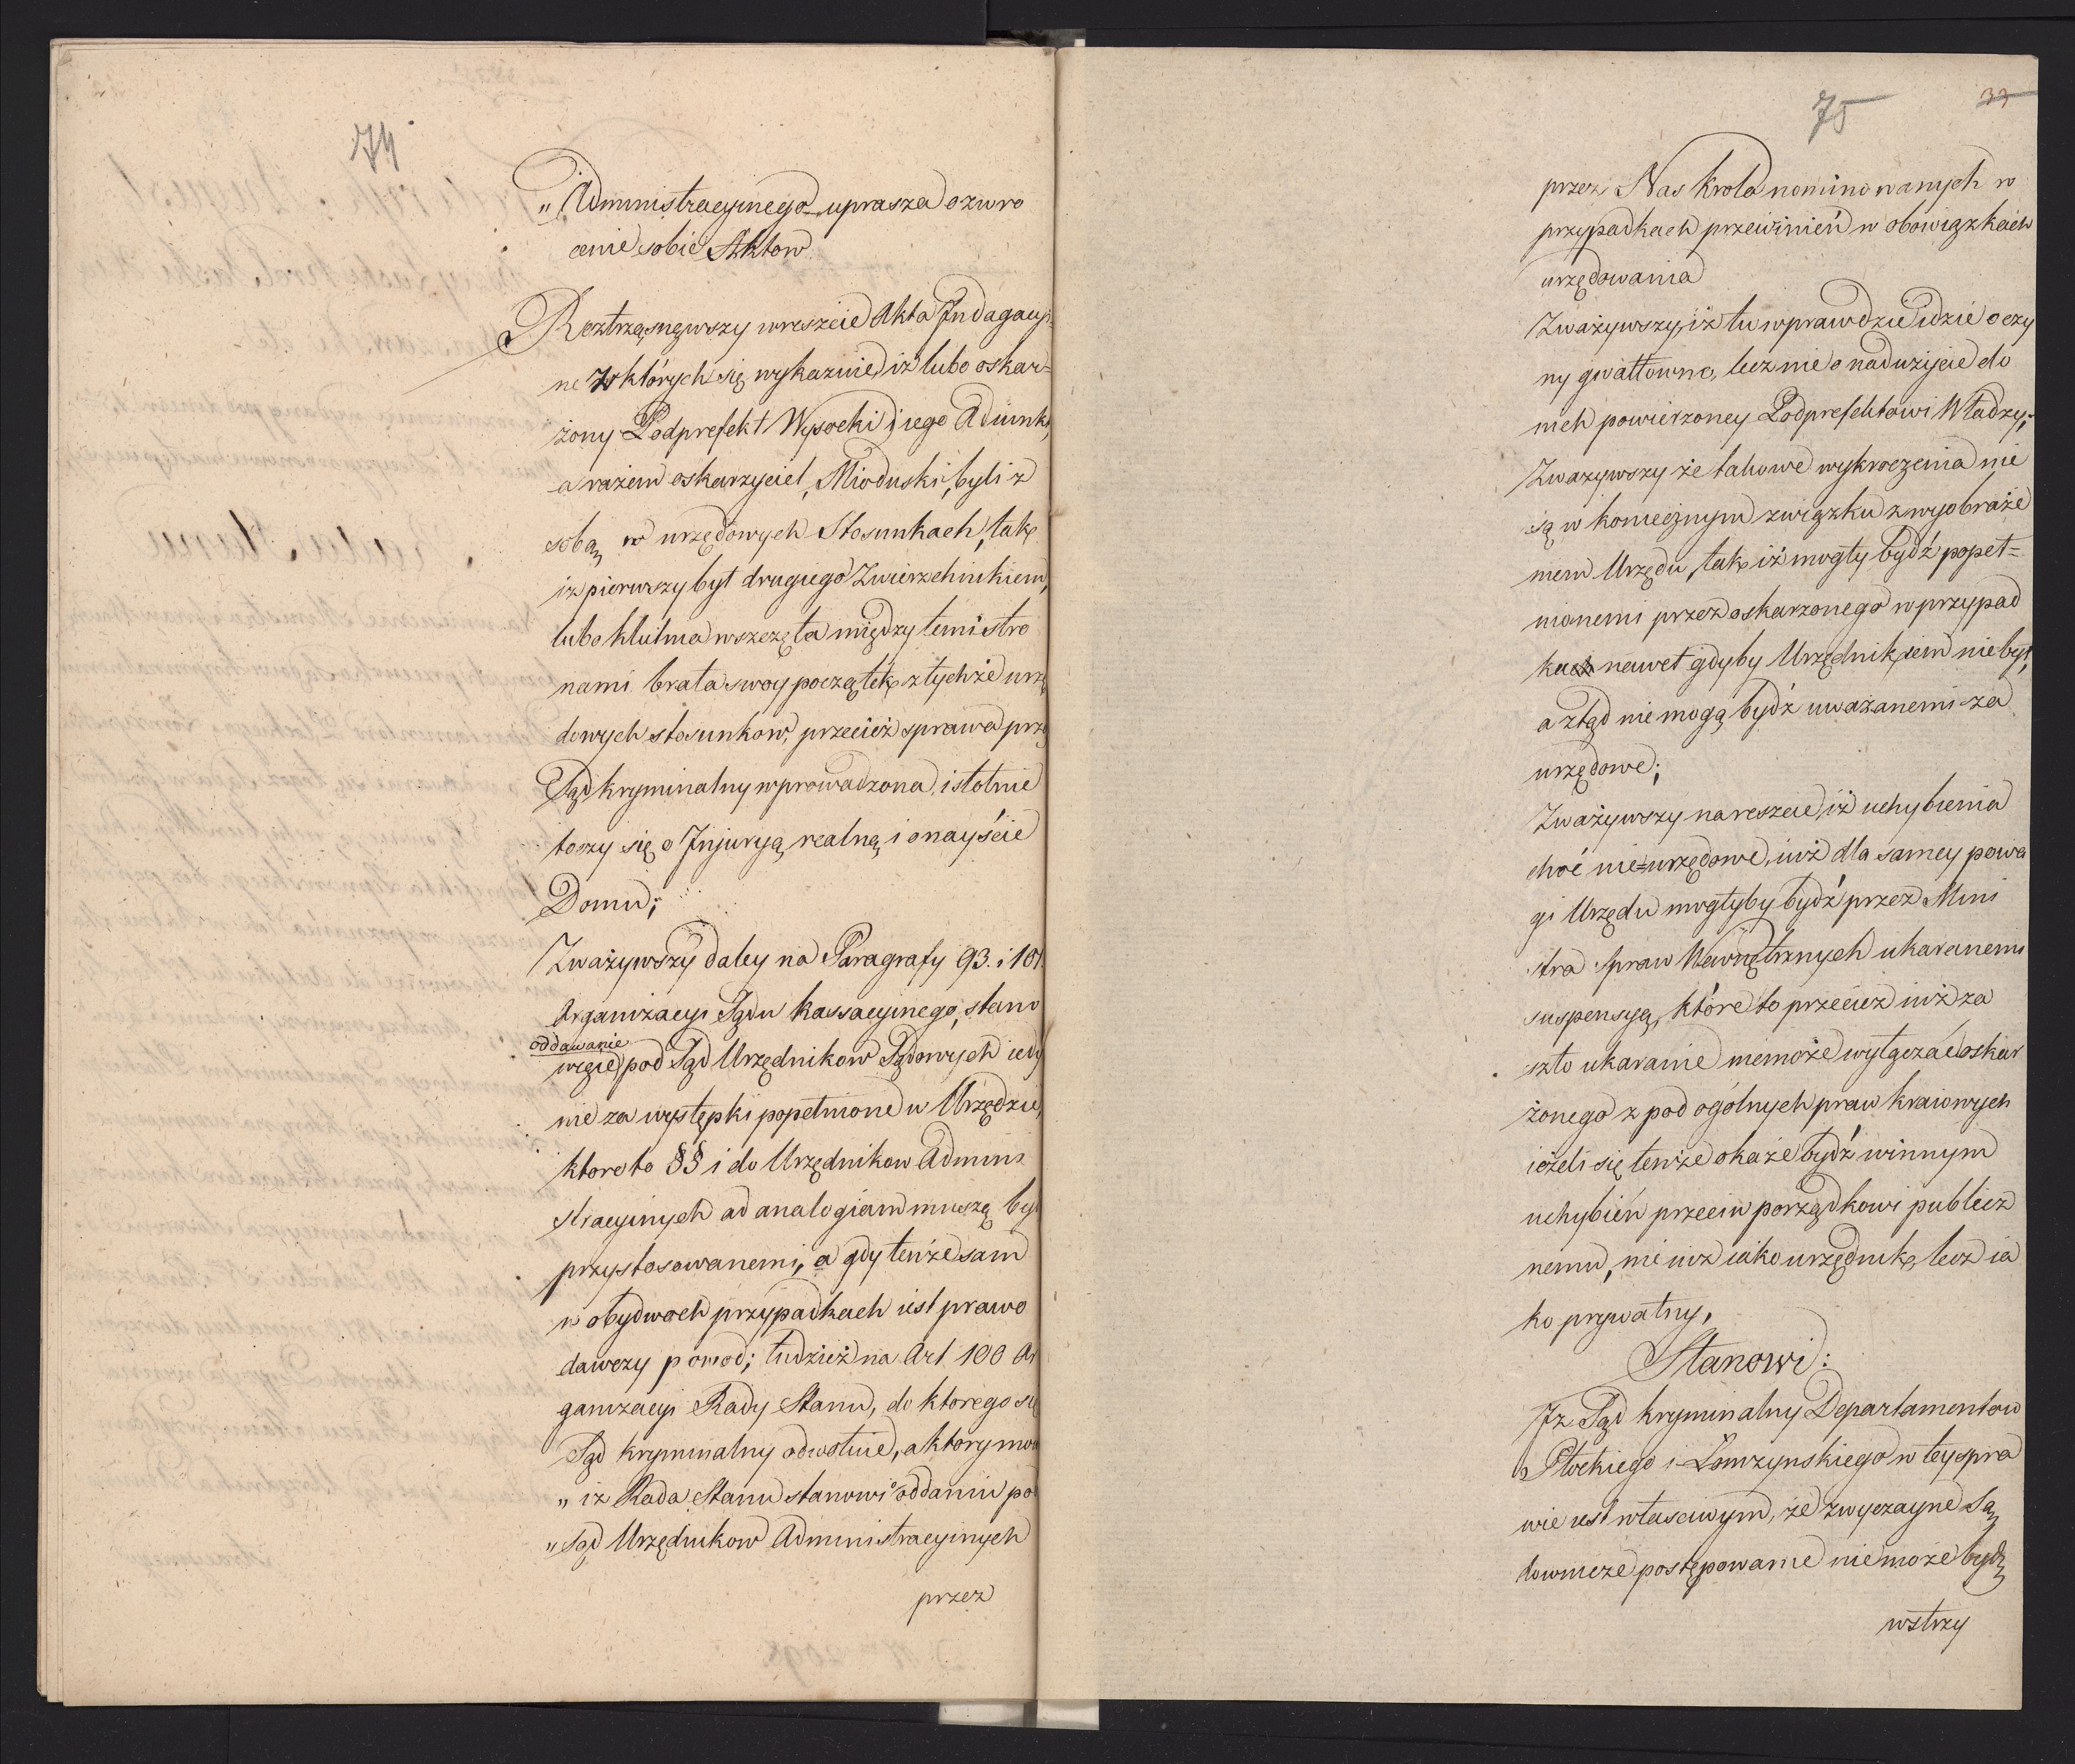 74
„Administracyinego uprasza o zwro
cenie sobie Aktow
Roztrząsnąwszy wreszcie Akta Indagacyi
ne z których się wykazuie, iż lubo oskar=
żony Podprefekt Wysocki i iego Adiunkt,
a razem oskarzyciel, Mioduski, byli z
sobą w urzędowych Stosunkach, tak
iz pierwszy był drugiego Zwierzchnikiem,
lubo kłutnia wszczęta między temi stro
nami brała swoy początek z tychże urzę
dowych stosunkow, przecież sprawa przed
Sąd kryminalny wprowadzona, istotnie
toczy się o Injuryą realną i o nayście
Domu;
Zważywszy daley na Paragrafy 93. i 101.
Organizacyi Sądu kassacyinego, stano
oddawanie
wiące pod Sąd Urzędnikow Sądowych iedy
nie za występki popełnione w Urzędzie,
ktore to §§ i do Urzędnikow Admini
stracyinych ad analogiam muszą bydź
przystosowanemi, a gdy tenże sam
w obydwoch przypadkach iest prawo
dawczy powod; tudzież na Art 100 Or
ganizacyi Rady Stanu, do ktorego się
Sąd kryminalny odwołuie, a ktory mowi
„ iz Rada Stanu stanowi o oddaniu pod
„ Sąd Urzędnikow Administracyinych
przez
75
33
przez Nas Krola nominowanych w
przypadkach przewinień w obowiązkach
urzędowania
Zważywszy, iż tu wprawdzie idzie o czy
ny gwałtowne, lecz nie o nadużycie do
nich powierzoney Podprefektowi Władzy;
Zwazywszy że takowe wykroczenia nie
są w koniecznym związku z wyobraże
niem Urzędu, tak iż mogły bydź popeł=
nionemi przez oskarzonego w przypad
kach nawet gdyby Urzędnikiem nie był,
a ztąd nie mogą bydź uważanemi za
urzędowe;
Zważywszy nareszcie, iż uchybienia
choć nie=urzędowe, iuż dla samey powa
gi Urzędu mogłyby bydź przez Mini
stra Spraw Wewnętrznych ukaranemi
suspensyą, które to przecież iuż za
szło ukaranie niemoże wyłączać oskar
żonego z pod ogólnych praw kraiowych
ieżeli się tenże okaże bydź winnym
uchybień przeciw porządkowi publicz
nemu, nie iuż iako urzędnik, lecz ia
ko prywatny,
Stanowi:
Iz Sąd kryminalny Departamentow
Płockiego i Łomzynskiego w tey spra
wie iest własciwym, że zwyczayne Są
downicze postępowanie nie może bydź
wstrzy